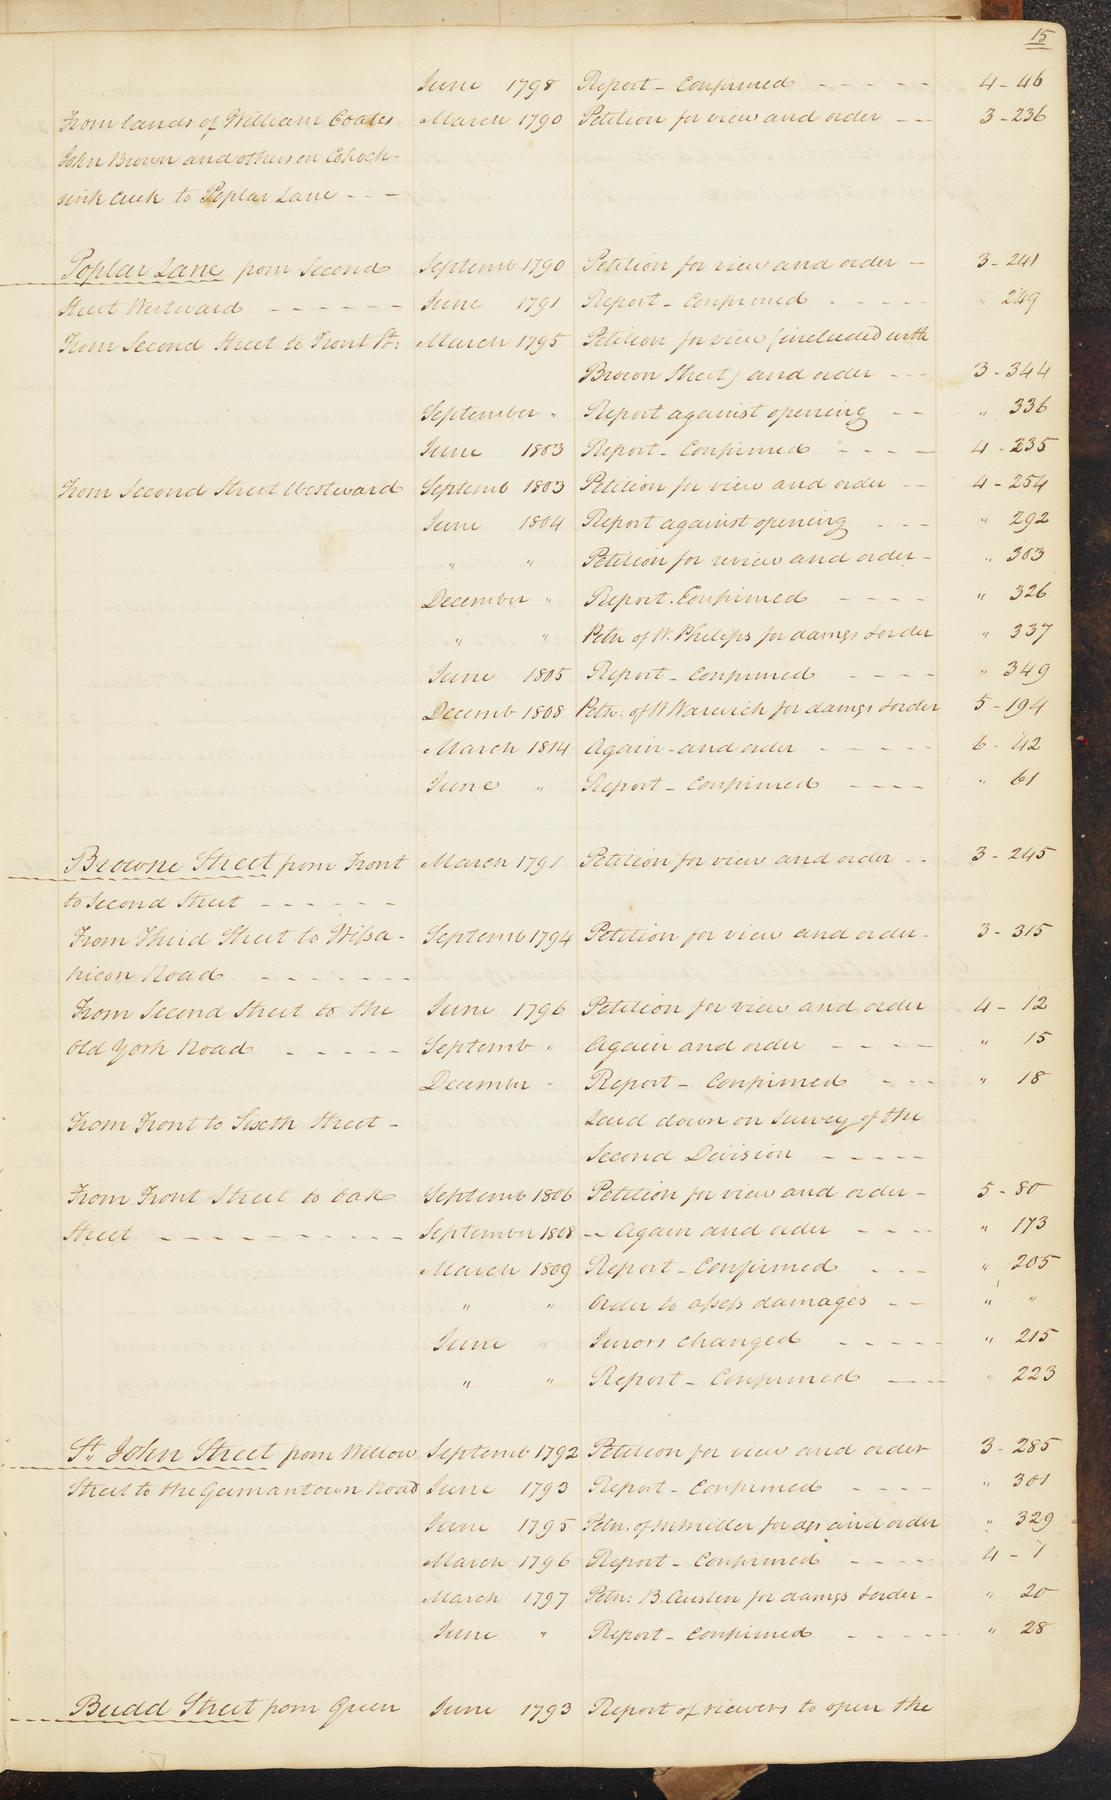 15
June 1798 Report - Confirmed - - - - - 4 - 46
From lands of William Coates March 1790 Petition for view and order - - - 3 - 236
John Brown and others on Cohock-
sink Creek to Poplar Lane - - -
Poplar Lane from Second Septemb 1790 Petition for view and order - 3 - 241
Street Westward - - - - - - June 1791 Report - Confirmed - - - - - " 249
From Second Street to Front St: March 1795 Petition for view (included with
Brown Street) and order - - - 3 - 344
September " Report against opening - - " 336
June 1803 Report - Confirmed - - - - - 4 - 235
From Second Street Westward Septemb 1803 Petition for view and order - - 4 - 254
June 1804 Report against opening - - - " 292
" " Petition for review and order - " 303
December " Report. Confirmed - - - - " 326
" " Petn of W. Philips for damgs & order " 337
June 1805 Report - Confirmed - - - - " 349
Decemb 1808 Petn: of W Warwick for damgs & order 5 - 194
March 1814 Again - and order - - - - - 6 - 42
June " Report - Confirmed - - - - " 61
Browne Street from Front March 1791 Petition for view and order - - 3 - 245
to Second Street - - - - - -
From Third Street to Wissa- Septemb 1794 Petition for view and order - 3 - 315
hicon Road - - - - - - -
From Second Street to the June 1796 Petition for view and order 4 - 12
Old York Road - - - - - Septemb " Again and order - - - - " 15
December " Report - Confirmed - - - " 18
From Front to Sixth Street - Laid down on Survey of the
Second Division - - - - -
From Front Street to Oak Septemb 1806 Petition for view and order - 5 - 80
Street - - - - - - - - - - September 1808 - - Again and order - - - - " 173
March 1809 Report - Confirmed - - - " 205
" " Order to assess damages - - " "
June " Jurors changed - - - - - " 215
" " Report - Confirmed - - - " 223
St. John Street from Willow Septemb 1792 Petition for view and order 3 - 285
Street to the Germantown Road June 1793 Report - Confirmed - - - - " 301
June 1795 Petn: of M Miller for dgs and order " 329
March 1796 Report - Confirmed - - - - 4 - 1
March 1797 Petn: B. Austin for damgs & order - " 20
June " Report - Confirmed - - - - - " 28
Budd Street from Green June 1793 Report of viewers to open the